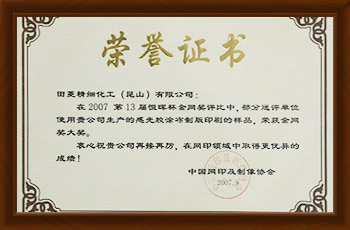 荣誉证书
田菱精细化工（昆山）有限公司：
在2007 第13届恒晖杯金网奖评比中，部分选评单位
使用贵公司生产的感光胶涂布制版印刷的样品，荣获金网
奖大奖。
衷心祝贵公司再接再厉，在网印领域中取得更优异的
成绩！
中国网印及制像协会
2007.9